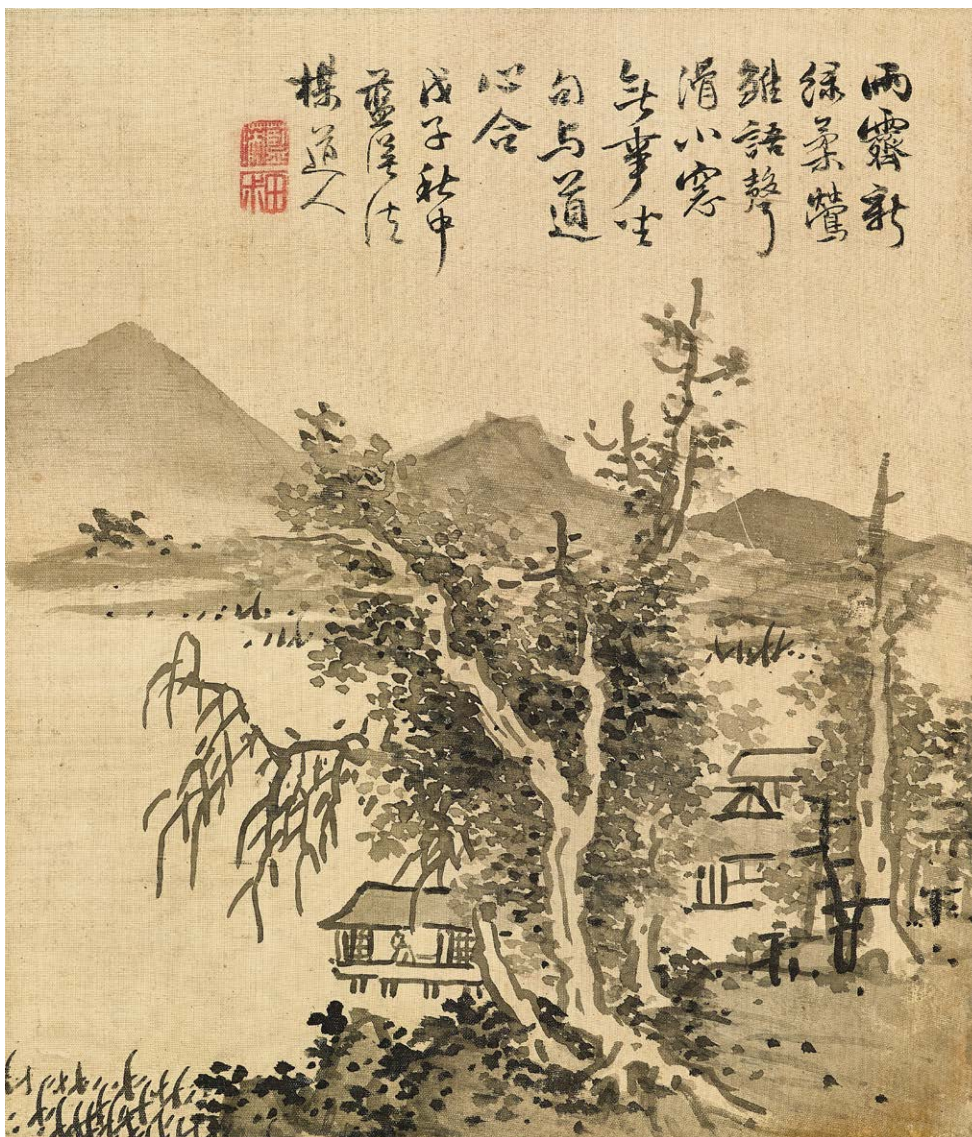 雨霽新
綠柔鶯
雛語聲
滑小窓
無事坐
与道
心合
戊子秋中
藍瑛法
楳道人